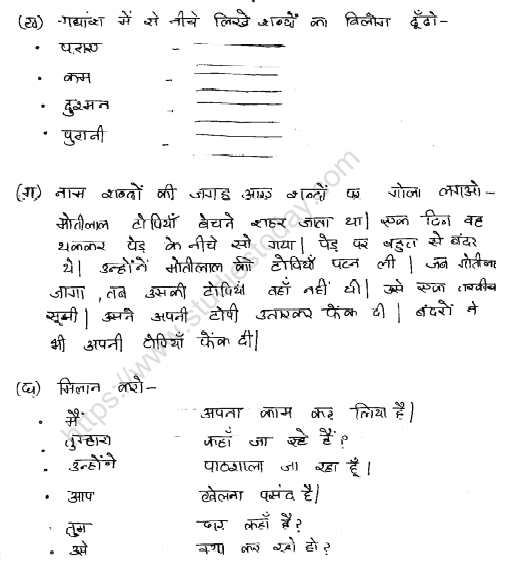 (ख) गद्यांश में से नीचे लिखे शब्दों का विलोम ढूँढो-
• पराए -
• कम -
• दुश्मन -
• पुरानी -
(ग) नाम शब्दों की जगह आए शब्दों पर गोला लगाओ-
मोतीलाल टोपियाँ बेचने शहर जाता था| एक दिन वह
थककर पेड़ के नीचे सो गया| पेड़ पर बहुत से बंदर
थे| उन्होंनें मोतीलाल की टोपियाँ पहन ली | जब मोतीलाल
जागा , तब उसकी टोपियाँ वहाँ नहीं थी| उसे एक तरकीब
सूझी| उसने अपनी टोपी उतारकर फेंक दी | बंदरों ने
भी अपनी टोपियाँ फेंक दी|
(घ) मिलान करो-
• मैं अपना काम कर लिया है|
• तुम्हारा कहाँ जा रहे हैं?
• उन्होंने पाठशाला जा रहा हूँ |
• आप खेलना पसंद है|
• तुम घर कहाँ है?
• उसे क्या कर रहे हो?
https://www.studiestoday.com